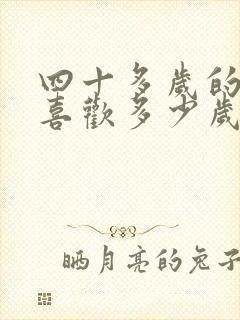 四十多歲的
喜歡多少歲
晒月亮的兔子